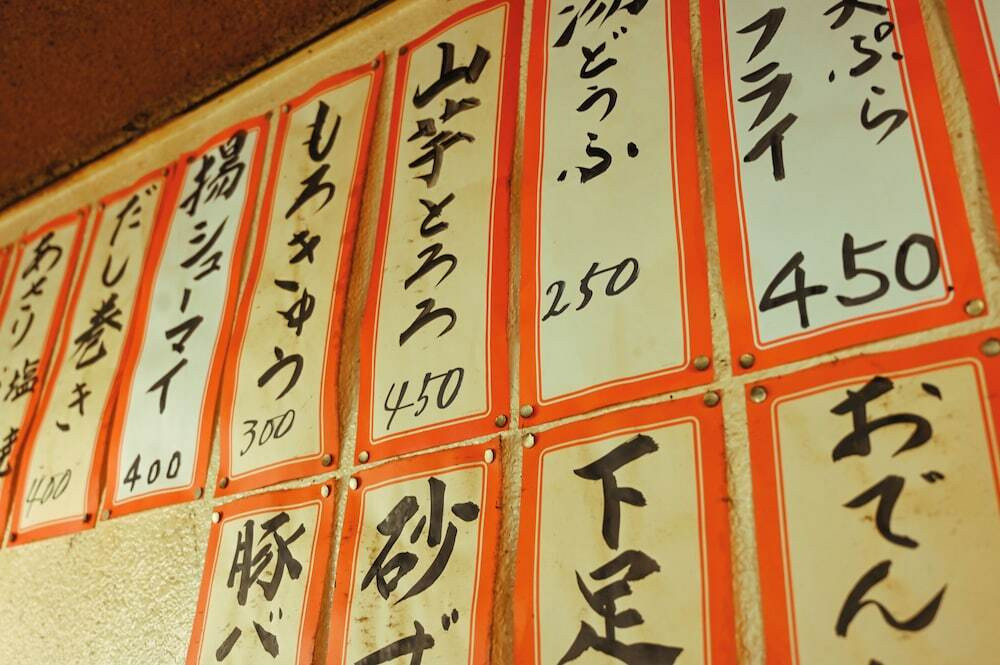 天ぷら
フライ
450
湯どうふ
250
山芋とろろ
450
もろきゅう
300
揚シューマイ
400
だし巻き
400
あっさり塩
おでん
下足
砂ず
豚バ